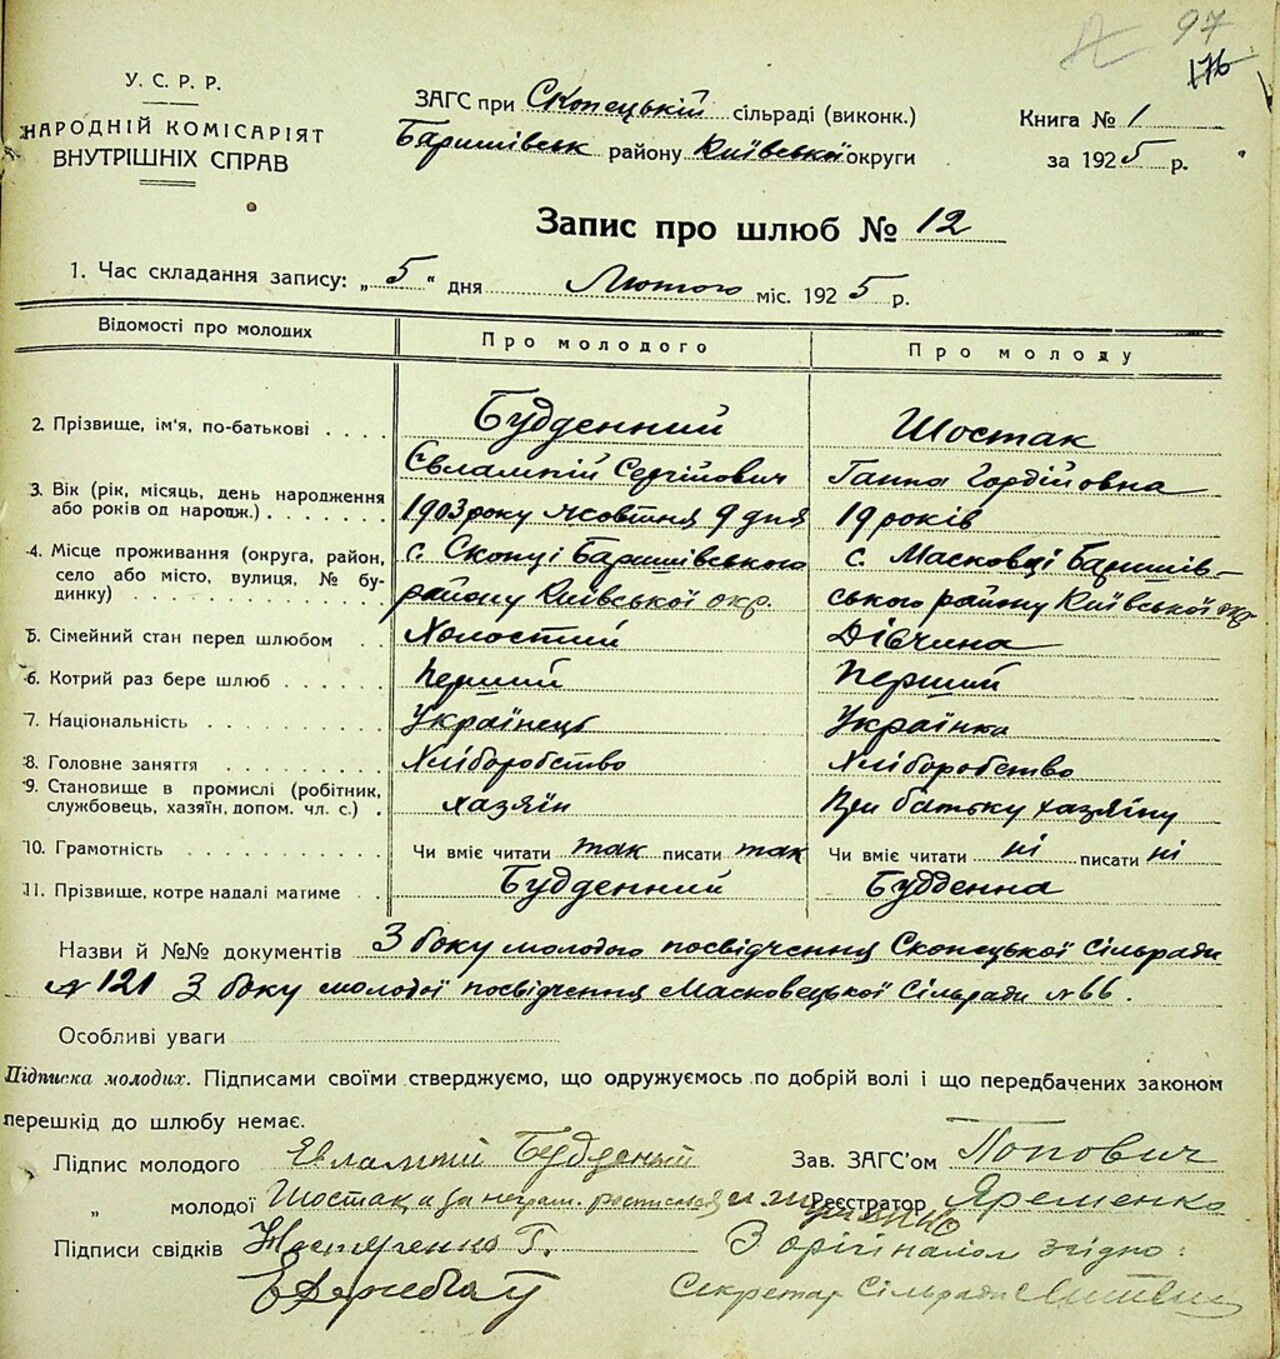 97
176
У. С. Р. Р.
НАРОДНІЙ КОМІСАРІЯТ
ВНУТРІШНІХ СПРАВ
ЗАГС при Скопецькій сільраді (виконк.)
Баришівськ району Київської округи
Книга № 1
за 1925 р.
Запис про шлюб № 12
1. Час складання запису: „5“ дня Лютого міс. 1925 р.
Відомості про молодих Про молодого Про молоду
2. Прізвище, ім'я, по-батькові . . . . Будденний Шостак
Євлампій Сергійович Ганна Гордійовна
3. Вік (рік, місяць, день народження або років од народж.) . . . . . . . 1903 року жовтня 9 дня 19 років
4. Місце проживання (округа, район, село або місто, вулиця, № будинку) . . . . . . . . . . . . . с. Скопці Баришівського с. Масковці Баришів-
району Київської окр. ського району Київської окр
5. Сімейний стан перед шлюбом . . Холостий Дівчина
6. Котрий раз бере шлюб . . . . . . Перший Перший
7. Національність . . . . . . . . . . Українець Українка
8. Головне заняття . . . . . . . . . Хліборобство Хліборобство
9. Становище в промислі (робітник, службовець, хазяїн, допом. чл. с.) . хазяїн При батьку хазяїну
10. Грамотність . . . . . . . . . . . Чи вміє читати так писати так Чи вміє читати ні писати ні
11. Прізвище, котре надалі матиме . . Будденний Будденна
Назви й №№ документів З боку молодого посвідчення Скопецької Сільради
№ 121 З боку молодої посвідчення Масковецької Сільради № 66.
Особливі уваги
Підписка молодих. Підписами своїми стверджуємо, що одружуємось по добрій волі і що передбачених законом
перешкід до шлюбу немає.
Підпис молодого Евлампій Будденый Зав. ЗАГС'ом Попович
„ молодої Шостак а за неграм. росписався Реєстратор Яременко
Підписи свідків Г. З орігіналом згідно:
Секретар Сільради